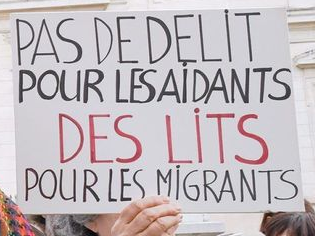 PAS DE DELIT
POUR LES AIDANTS
DES LITS
POUR LES MIGRANTS